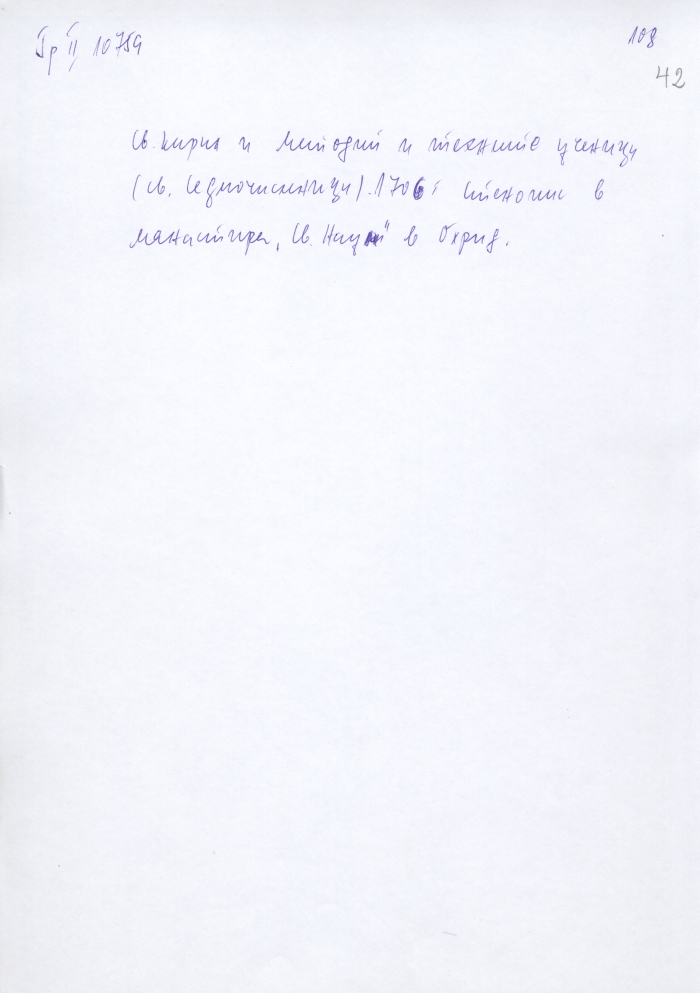 Гр II, 10759
108
42
Св. Кирил и Методий и техните ученици
(св. Седмочисленици). 1706г стенопис в
манастира „Св. Наум“ в Охрид.